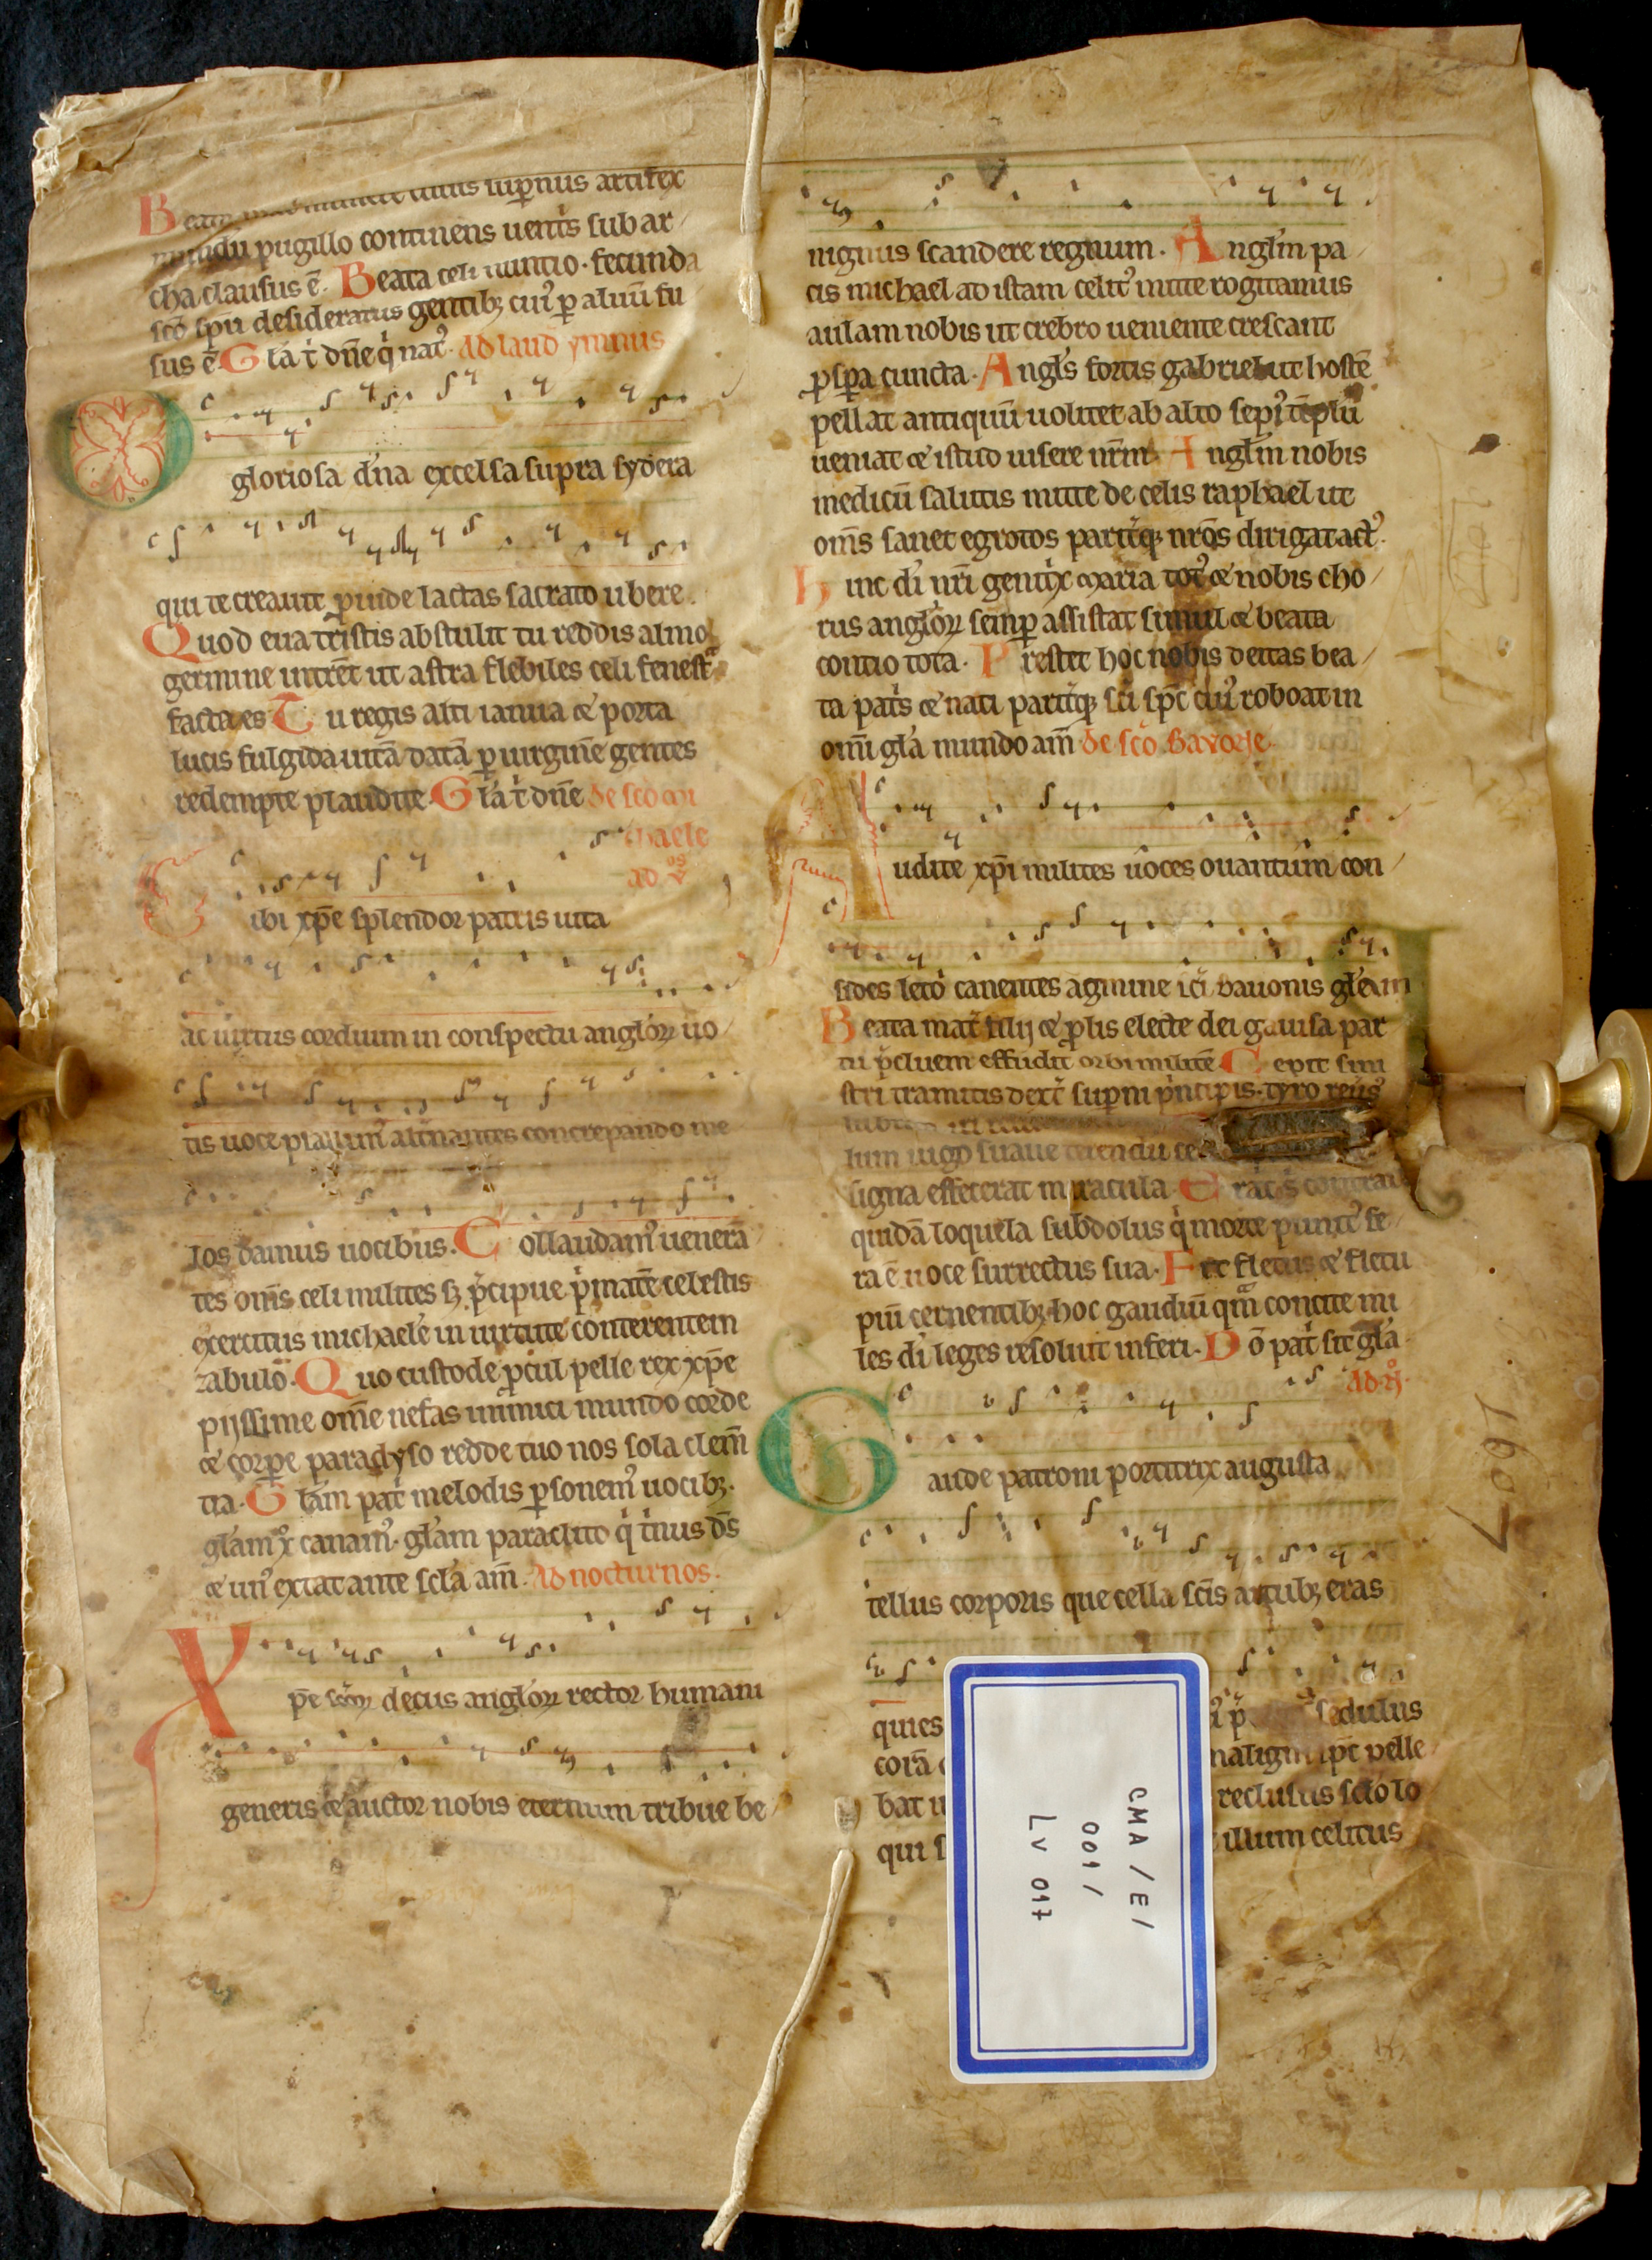 Beata mat̄ munere cuius sup̄nus artifex
mundū pugillo continens uent̄s sub ar
cha clausus ē. Beata celi nuntio. fecunda
scō sp̄u desideratus gentib; cui' p̄ aluū fu
sus ē. Gla t̄ dn̄e q̄ nat'. Ad laud ymnus
O
gloriosa d'na excelsa supra sydera
qui te creauit p̄uide lactas sacrato ubere.
Quod eua tristis abstulit tu reddis almo
germine intrēt ut astra flebiles celi fenest̄
facta es Tu regis alti ianua & porta
lucis fulgida uitā datā p̄ uirginē gentes
redempte plaudite. Gla t̄ dn̄e de scō mi
chaele
ad v̄os
Tibi xp̄e splendor patris uita
ac uirtus cordium in conspectu anglōꝝ uo
tis uoce psallim' alt̄nantes concrepando me
los damus uocibus. Collaudam' uenerā
tes om̄s celi milites s; p̄cipue p̄matē celestis
exercitus michaelē in uirtute conterentem
zabulō. Quo custode p̄cul pelle rex xp̄e
pijssime om̄e nefas inimici mundo corde
& corpe paradyso redde tuo nos sola clem̄
tia. Glām pat̄ melodis p̄sonem' uocib;.
glām xp̄o canam'. glām paraclito q̄ t̄nus d̄s
& un' extat ante scl̄a am̄. Ad nocturnos.
Xpe scōꝝ decus anglōꝝ rector humani
generis & auctor nobis eternum tribue be
nignus scandere regnum. Anglm̄ pa
cis michael ad istam celit' mitte rogitamus
aulam nobis ut crebro ueniente crescant
p̄sp̄a cuncta. Angls̄ fortis gabriel ut hostē
pellat antiquū uolitet ab alto sep̄' tēplū
ueniat & istud uisere nr̄m. Anglm̄ nobis
medicū salutis mitte de celis raphael ut
om̄s sanet egrotos parit̄q; nrōs dirigat act'.
Hinc di nr̄i genit̄x maria tot' & nobis cho
rus anglōꝝ semp̄ assistat simul & beata
contio tota. Prestet hoc nobis deitas bea
ta pat̄s & nati parit̄q; sc̄i sp̄c cui' roboat in
om̄i glā mundo am̄ de scō Bavone.
Audite xp̄i milites uoces ouantum con
sides leto canentes agmine sc̄i bauonis glām
Beata mat̄ filij & p̄lis electe dei gauisa par
tu p̄cluem effudit orbi militē Cepit sini
stri tramitis dext̄ sup̄ni p̄ncipis. tyro
lum iugo suaue
signa effecerat miracula. Erat
quidā loquela subdolus q̄ morte punit' fe
ra ē uoce surrectus sua. Fit fletus & fletu
piū cernentib; hoc gaudiū qm̄ concite mi
les di leges resoluit inferi. Dō pat̄ sit glā
Ad n̄
Gaude patroni portitrix augusta
tellus corporis que cella sc̄is artub; eras
quies
sedulus
corā
maligni sp̄c pelle
bat
reclusus scl̄o lo
qui
illum celitus
1607
CMA / E /
001 /
LV 017